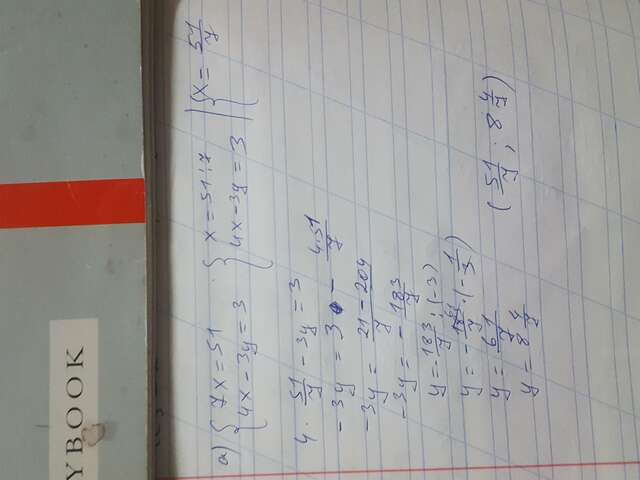 YBOOK
a) { 7x = 51
4x - 3y = 3
{ x = 51:7
4x - 3y = 3
{ x = 51/7
4 · 51/7 - 3y = 3
-3y = 3 - 4·51/7
-3y = 21 - 204/7
-3y = - 183/7
y = - 183/7 : (-3)
y = - 183/7 · (- 1/3)
y = 61/7
y = 8 5/7
( 51/7 ; 8 5/7 )